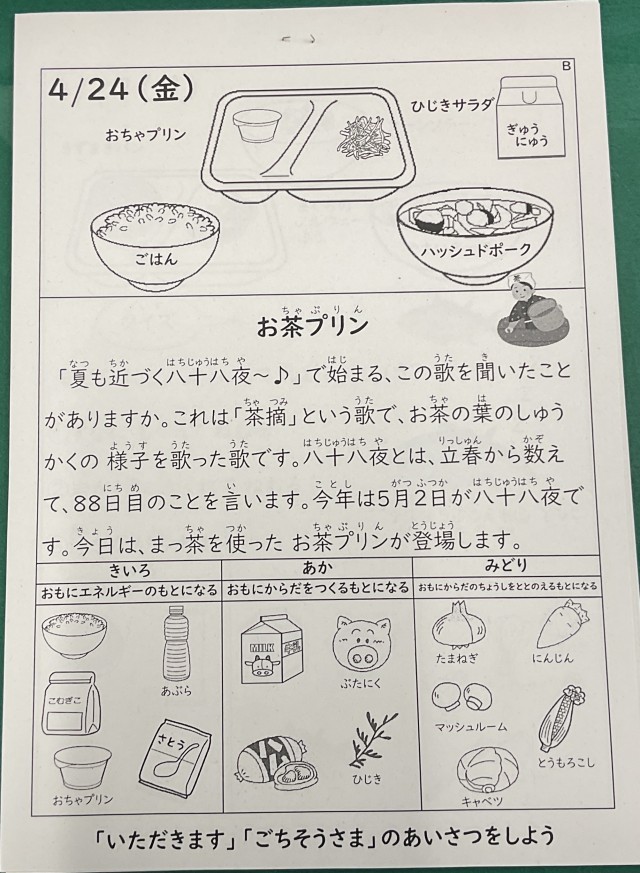 B
4/24(金)
おちゃプリン
ひじきサラダ
ぎゅう
にゅう
ごはん
ハッシュドポーク
お茶プリン
「夏も近づく八十八夜～♪」で始まる、この歌を聞いたこと
がありますか。これは「茶摘」という歌で、お茶の葉のしゅう
かくの 様子を歌った歌です。八十八夜とは、立春から数え
て、88日目のことを言います。今年は5月2日が八十八夜で
す。今日は、まっ茶を使った お茶プリンが登場します。
きいろ
おもにエネルギーのもとになる
あか
おもにからだをつくるもとになる
みどり
おもにからだのちょうしをととのえるもとになる
あぶら
こむぎこ
さとう
おちゃプリン
MILK
牛乳
ぶたにく
ひじき
たまねぎ
にんじん
マッシュルーム
とうもろこし
キャベツ
「いただきます」「ごちそうさま」のあいさつをしよう